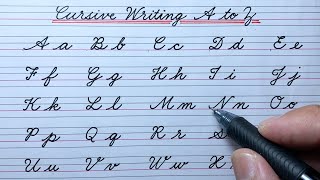 Cursive Writing A to Z
A a B b C c D d E e
F f G g H h I i J j
K k L l M m N n O o
P p Q q R r S
U u V v W w X